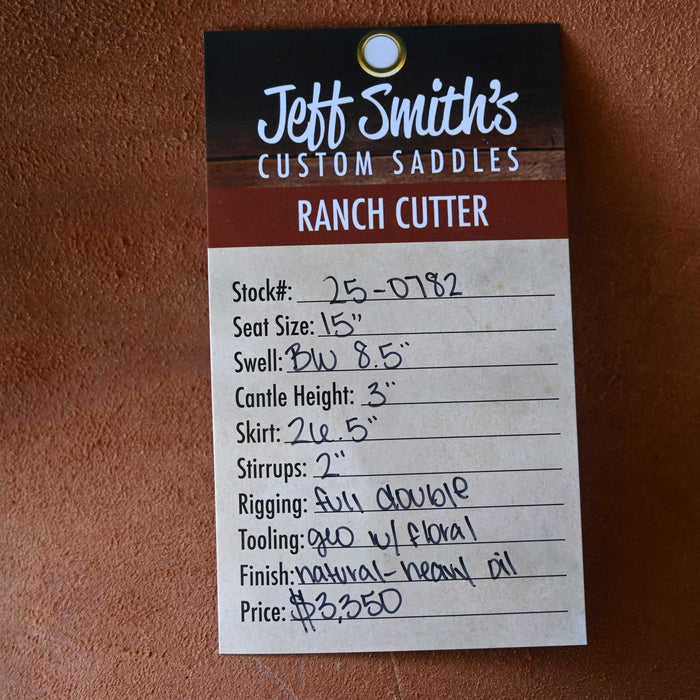 Jeff Smith's
CUSTOM SADDLES
RANCH CUTTER
Stock#: 25-0782
Seat Size: 15"
Swell: BW 8.5"
Cantle Height: 3"
Skirt: 26.5"
Stirrups: 2"
Rigging: full double
Tooling: geo w/ floral
Finish: natural-heavy oil
Price: $3,350